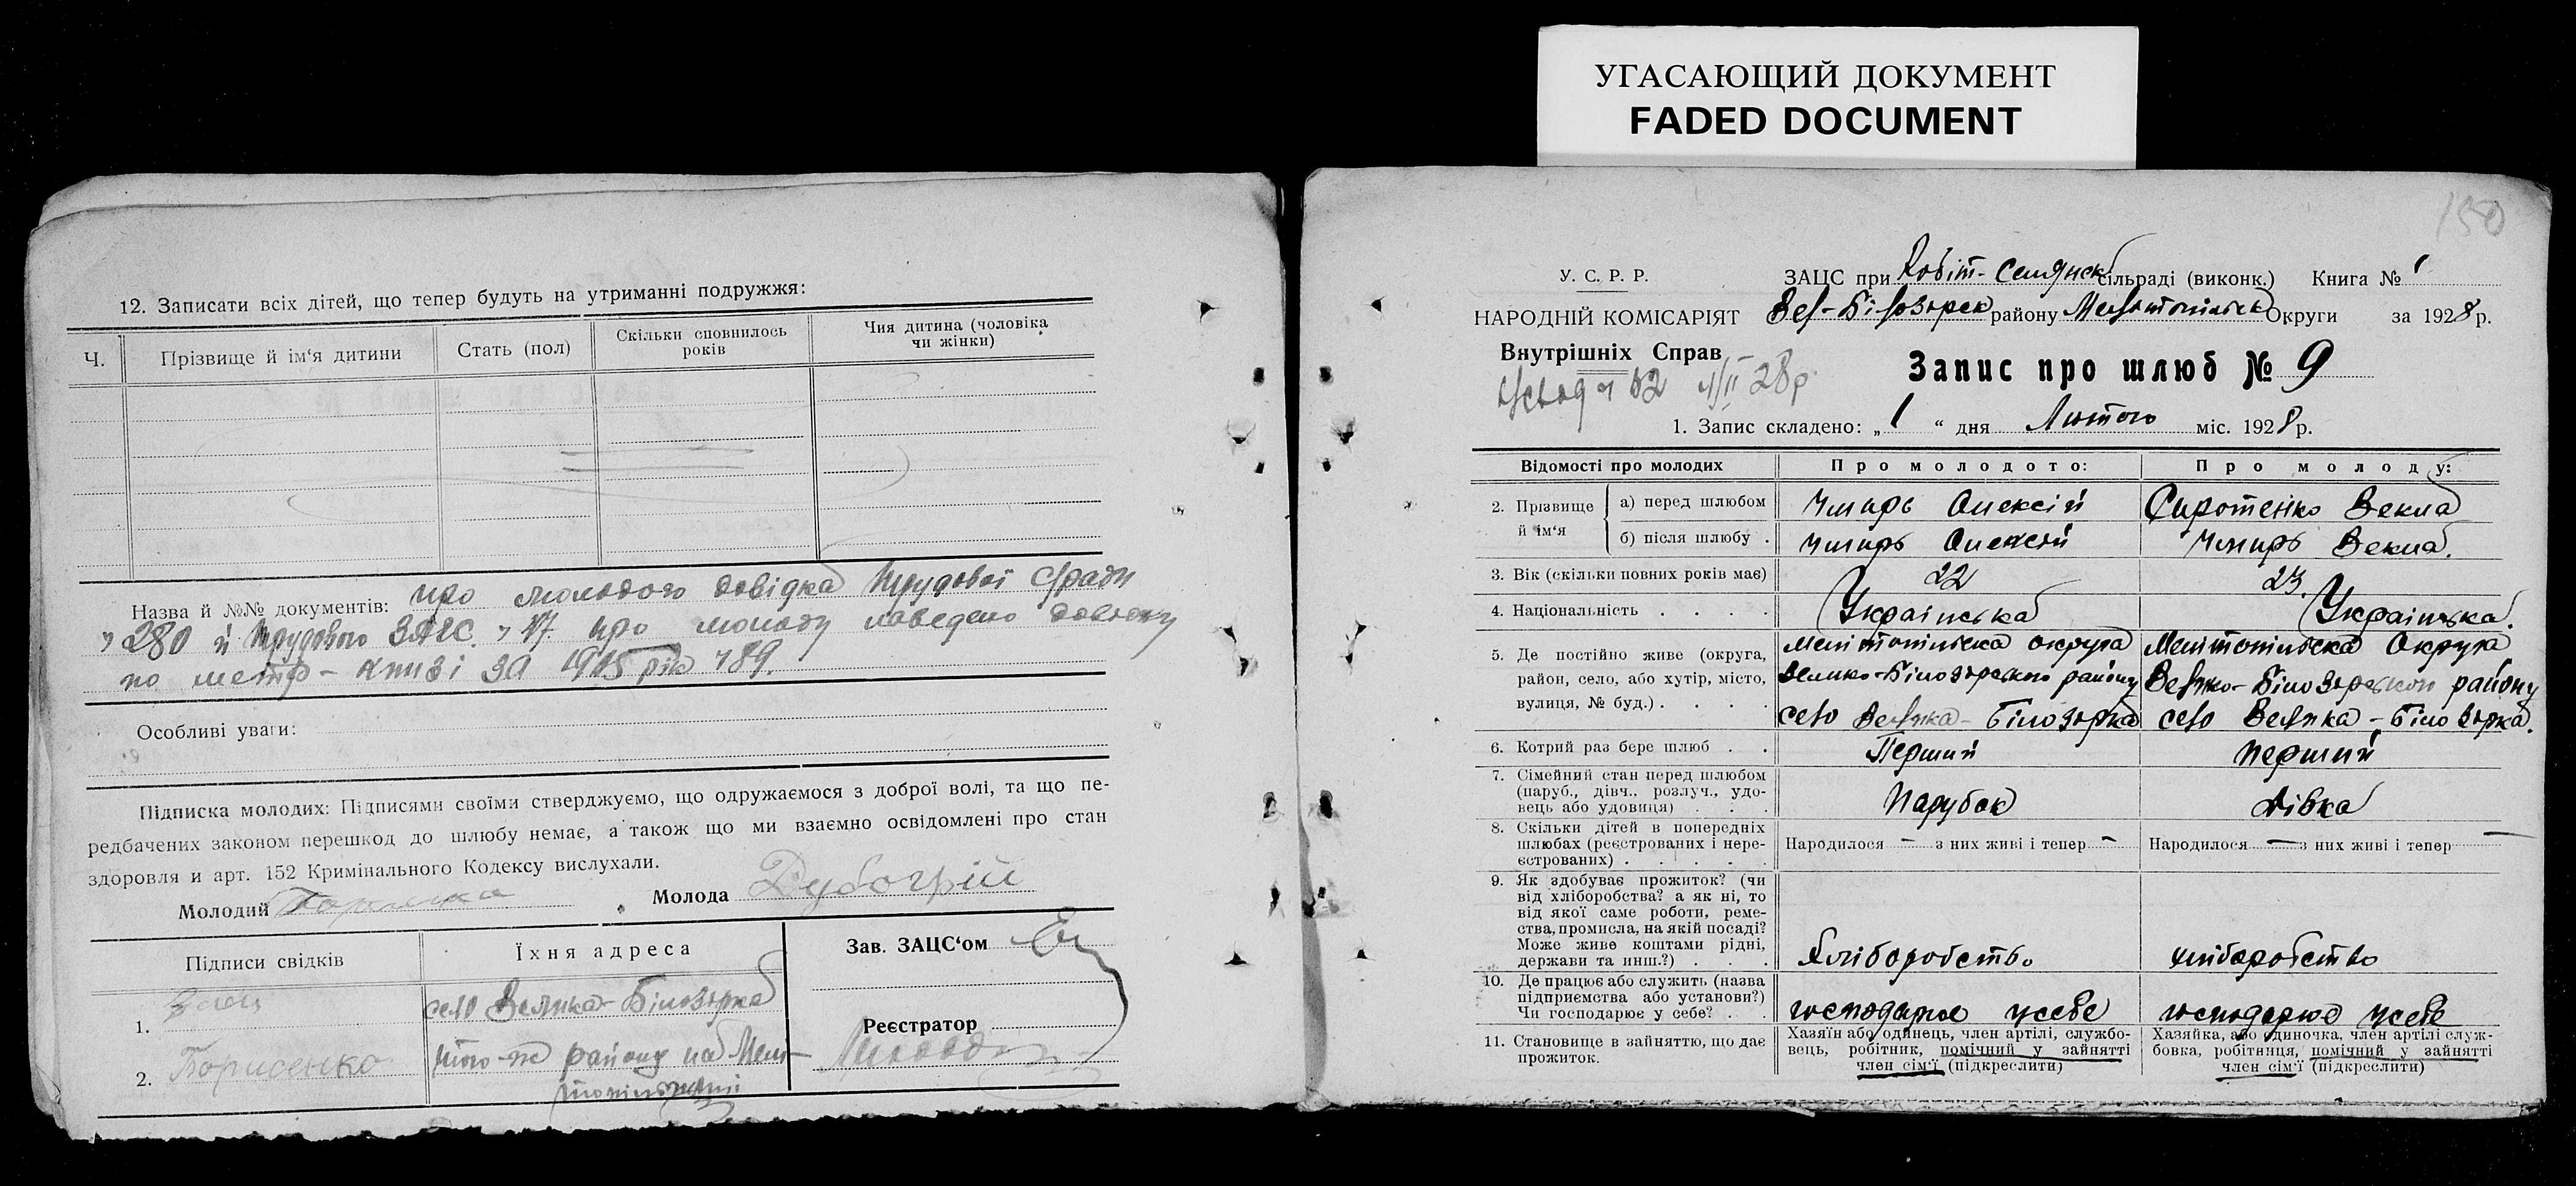 УГАСАЮЩИЙ ДОКУМЕНТ
FADED DOCUMENT
12. Записати всіх дітей, що тепер будуть на утриманні подружжя:
Ч. Прізвище й ім'я дитини Стать (пол) Скільки сповнилось років Чия дитина (чоловіка чи жінки)
Назва й №№ документів: про молодого довідка
280 й ЗАГС 17 про молоду наведено довідку
по метр-книзі за 1905 рік 189.
Особливі уваги:
Підписка молодих: Підписями своїми стверджуємо, що одружаємося з доброї волі, та що пе-
редбачених законом перешкод до шлюбу немає, а також що ми взаємно освідомлені про стан
здоровля и арт. 152 Кримінального Кодексу вислухали.
Молодий Молода
Підписи свідків Їхня адреса Зав. ЗАЦС'ом
1. Заєц село Велика-Білозірка Реєстратор
2. Борисенко того-ж району на Мелі-
топільщині
150
У. С. Р. Р. ЗАЦС при Робіт-Селянськ сільраді (виконк.) Книга № 1
НАРОДНІЙ КОМІСАРІЯТ Вел-Білозирск району Мелітопільск Округи за 1928 р.
Внутрішніх Справ
28р.
Запис про шлюб № 9
1. Запис складено: „1“ дня Лютого міс. 1928 р.
Відомості про молодих Про молодого: Про молоду:
2. Прізвище й ім'я а) перед шлюбом Чмирь Олексій Сиротенко Векла
б) після шлюбу . Чмирь Олексій Чмирь Векла.
3. Вік (скільки повних років має) 22 23.
4. Національність . . . . Українська Українська.
5. Де постійно живе (округа, Мелітопільска округа Мелітопільска Округа
район, село, або хутір, місто, Велико-Білозірського району Велико-Білозірського району
вулиця, № буд.) . . . . село Велика-Білозірка село Велика-Білозірка.
6. Котрий раз бере шлюб . . Перший Перший
7. Сімейний стан перед шлюбом
(паруб., дівч., розлуч., удо-
вець або удовиця) . . . Парубок Дівка
8. Скільки дітей в попередніх
шлюбах (реєстрованих і нере-
єстрованих) . . . . . Народилося — з них живі і тепер — Народилося — з них живі і тепер —
9. Як здобуває прожиток? (чи
від хліборобства? а як ні, то
від якої саме роботи, реме-
ства, промисла, на якій посаді?
Може живе коштами рідні,
держави та инш.?) . . . Хліборобство хліборобство
10. Де працює або служить (назва
підприємства або установи?)
Чи господарює у себе? . . господарює усебе господарює усебе
11. Становище в зайняттю, що дає
прожиток.
Хазяїн або одинець, член артілі, службо-
вець, робітник, помічний у зайнятті
член сім'ї (підкреслити)
Хазяйка, або одиночка, член артілі служ-
бовка, робітниця, помічний у зайнятті
член сім'ї (підкреслити)